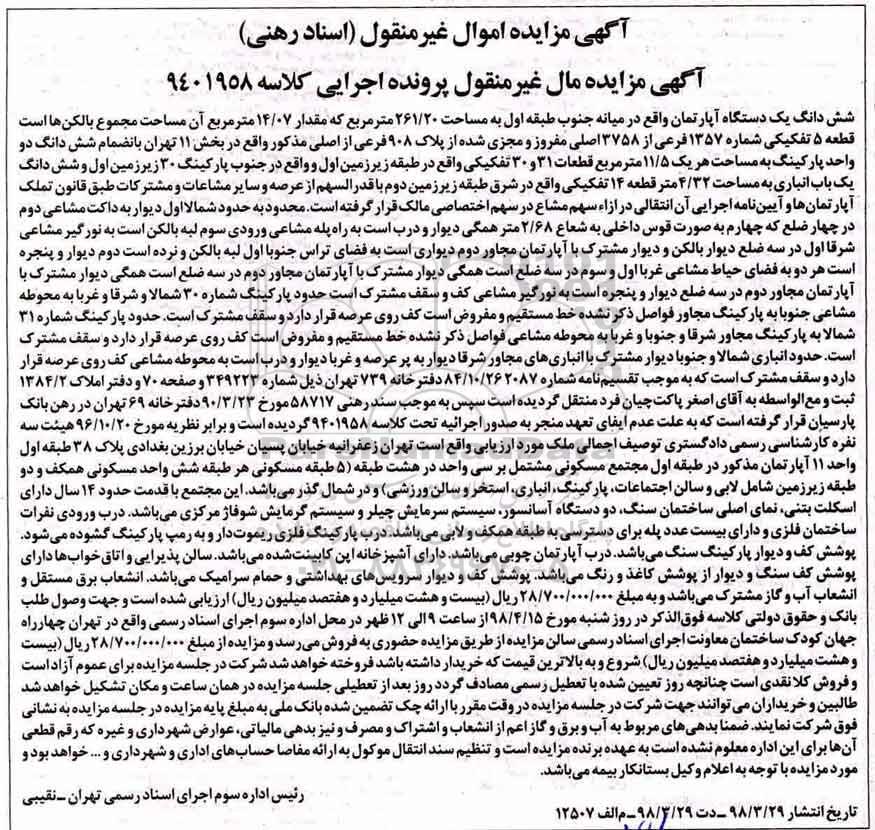 آگهی مزایده اموال غیرمنقول (اسناد رهنی)
آگهی مزایده مال غیرمنقول پرونده اجرایی کلاسه ۹۴۰۱۹۵۸
شش دانگ یک دستگاه آپارتمان واقع در میانه جنوب طبقه اول به مساحت ۲۶۱/۲۰ مترمربع که مقدار ۱۴/۰۷ مترمربع آن مساحت مجموع بالکن‌ها است
قطعه ۵ تفکیکی شماره ۱۳۵۷ فرعی از ۳۷۵۸ اصلی مفروز و مجزی شده از پلاک ۹۰۸ فرعی از اصلی مذکور واقع در بخش ۱۱ تهران بانضمام شش دانگ دو
واحد پارکینگ به مساحت هر یک ۱۱/۵ مترمربع قطعات ۳۱ و ۳۰ تفکیکی واقع در طبقه زیرزمین اول و واقع در جنوب پارکینگ ۳۰ زیرزمین اول و شش دانگ
یک باب انباری به مساحت ۴/۳۲ متر قطعه ۱۴ تفکیکی واقع در شرق طبقه زیرزمین دوم با قدرالسهم از عرصه و سایر مشاعات و مشترکات طبق قانون تملک
آپارتمان‌ها و آیین‌نامه اجرایی آن انتقالی در ازاء سهم مشاع در سهم اختصاصی مالک قرار گرفته است. محدود به حدود شمالا اول دیوار به داکت مشاعی دوم
در چهار ضلع که چهارم به صورت قوس داخلی به شعاع ۲/۶۸ متر همگی دیوار و درب است به راه پله مشاعی ورودی سوم لبه بالکن است به نورگیر مشاعی
شرقا اول در سه ضلع دیوار بالکن و دیوار مشترک با آپارتمان مجاور دوم دیواری است به فضای تراس جنوبا اول لبه بالکن و نرده است دوم دیوار و پنجره
است هر دو به فضای حیاط مشاعی غربا اول و سوم در سه ضلع است همگی دیوار مشترک با آپارتمان مجاور دوم در سه ضلع است همگی دیوار مشترک با
آپارتمان مجاور دوم در سه ضلع دیوار و پنجره است به نورگیر مشاعی کف و سقف مشترک است حدود پارکینگ شماره ۳۰ شمالا و شرقا و غربا به محوطه
مشاعی جنوبا به پارکینگ مجاور فواصل ذکر نشده خط مستقیم و مفروض است کف روی عرصه قرار دارد و سقف مشترک است. حدود پارکینگ شماره ۳۱
شمالا به پارکینگ مجاور شرقا و جنوبا و غربا به محوطه مشاعی فواصل ذکر نشده خط مستقیم و مفروض است کف روی عرصه قرار دارد و سقف مشترک
است. حدود انباری شمالا و جنوبا دیوار مشترک با انباری‌های مجاور شرقا دیوار به پر عرصه و غربا دیوار و درب است به محوطه مشاعی کف روی عرصه قرار
دارد و سقف مشترک است که به موجب تقسیم‌نامه شماره ۲۰۸۷ ۸۴/۱۰/۲۶ دفترخانه ۷۳۹ تهران ذیل شماره ۳۴۹۲۲۳ و صفحه ۷۰ و دفتر املاک ۱۳۸۴/۲
ثبت و مع‌الواسطه به آقای اصغر پاکت‌چیان فرد منتقل گردیده است سپس به موجب سند رهنی ۵۸۷۱۷ مورخ ۹۰/۳/۲۳ دفترخانه ۶۹ تهران در رهن بانک
پارسیان قرار گرفته است که به علت عدم ایفای تعهد منجر به صدور اجرائیه تحت کلاسه ۹۴۰۱۹۵۸ گردیده است و برابر نظریه مورخ ۹۶/۱۰/۲۰ هیئت سه
نفره کارشناسی رسمی دادگستری توصیف اجمالی ملک مورد ارزیابی واقع است تهران زعفرانیه خیابان پسیان خیابان برزین بغدادی پلاک ۳۸ طبقه اول
واحد ۱۱ آپارتمان مذکور در طبقه اول مجتمع مسکونی مشتمل بر سی واحد در هشت طبقه (۵ طبقه مسکونی هر طبقه شش واحد مسکونی همکف و دو
طبقه زیرزمین شامل لابی و سالن اجتماعات، پارکینگ، انباری، استخر و سالن ورزشی) و در شمال گذر می‌باشد. این مجتمع با قدمت حدود ۱۴ سال دارای
اسکلت بتنی، نمای اصلی ساختمان سنگ، دو دستگاه آسانسور، سیستم سرمایش چیلر و سیستم گرمایش شوفاژ مرکزی می‌باشد. درب ورودی نفرات
ساختمان فلزی و دارای بیست عدد پله برای دسترسی به طبقه همکف و لابی می‌باشد. درب پارکینگ فلزی ریموت‌دار و به رمپ پارکینگ گشوده می‌شود.
پوشش کف و دیوار پارکینگ سنگ می‌باشد. درب آپارتمان چوبی می‌باشد. دارای آشپزخانه اپن کابینت‌شده می‌باشد. سالن پذیرایی و اتاق‌خواب‌ها دارای
پوشش کف سنگ و دیوار از پوشش کاغذ و رنگ می‌باشد. پوشش کف و دیوار سرویس‌های بهداشتی و حمام سرامیک می‌باشد. انشعاب برق مستقل و
انشعاب آب و گاز مشترک می‌باشد و به مبلغ ۲۸/۷۰۰/۰۰۰/۰۰۰ ریال (بیست و هشت میلیارد و هفتصد میلیون ریال) ارزیابی شده است و جهت وصول طلب
بانک و حقوق دولتی کلاسه فوق‌الذکر در روز شنبه مورخ ۹۸/۴/۱۵ از ساعت ۹ الی ۱۲ ظهر در محل اداره سوم اجرای اسناد رسمی واقع در تهران چهارراه
جهان کودک ساختمان معاونت اجرای اسناد رسمی سالن مزایده از طریق مزایده حضوری به فروش می‌رسد و مزایده از مبلغ ۲۸/۷۰۰/۰۰۰/۰۰۰ ریال (بیست
و هشت میلیارد و هفتصد میلیون ریال) شروع و به بالاترین قیمت که خریدار داشته باشد فروخته خواهد شد شرکت در جلسه مزایده برای عموم آزاد است
و فروش کلا نقدی است چنانچه روز تعیین شده با تعطیل رسمی مصادف گردد روز بعد از تعطیلی جلسه مزایده در همان ساعت و مکان تشکیل خواهد شد
طالبین و خریداران می‌توانند جهت شرکت در جلسه مزایده در وقت مقرر با ارائه چک تضمین شده بانک ملی به مبلغ پایه مزایده در جلسه مزایده به نشانی
فوق شرکت نمایند. ضمنا بدهی‌های مربوط به آب و برق و گاز اعم از انشعاب و اشتراک و مصرف و نیز بدهی مالیاتی، عوارض شهرداری و غیره که رقم قطعی
آن‌ها برای این اداره معلوم نشده است به عهده برنده مزایده است و تنظیم سند انتقال موکول به ارائه مفاصا حساب‌های اداری و شهرداری و ... خواهد بود و
مورد مزایده با توجه به اعلام وکیل بستانکار بیمه می‌باشد.
رئیس اداره سوم اجرای اسناد رسمی تهران ـ نقیبی
تاریخ انتشار ۹۸/۳/۲۹ ـ دت ۹۸/۳/۲۹ ـ م‌الف ۱۲۵۰۷